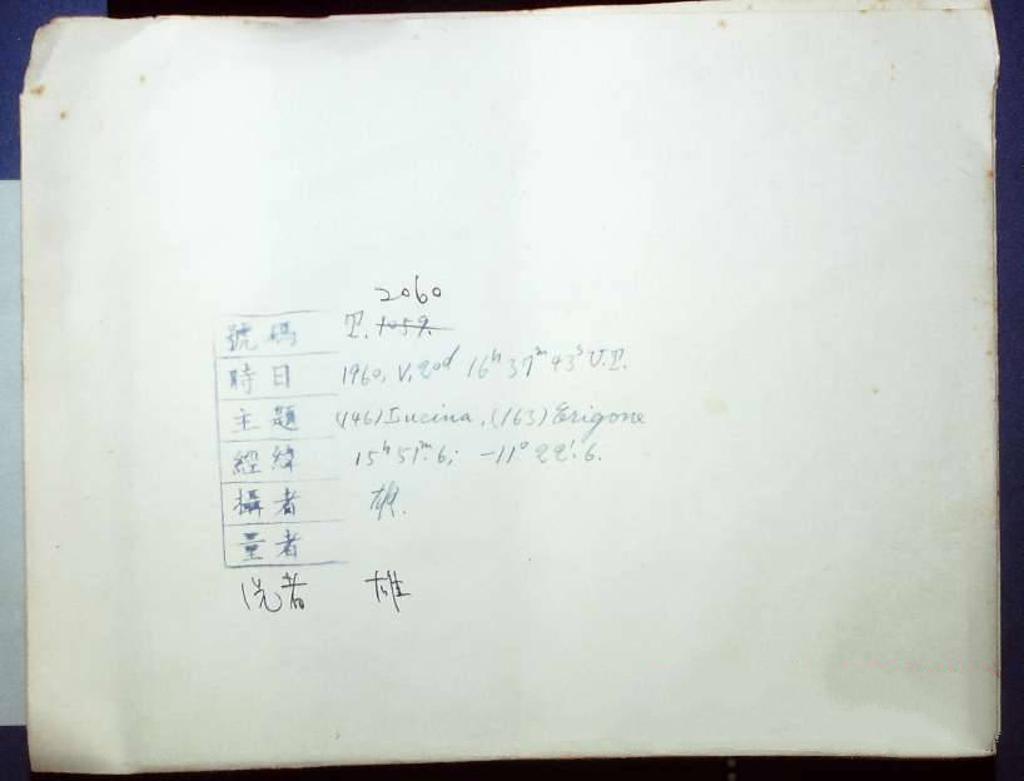 2060
號碼 T. 1059.
時日 1960, V, 20d 16h 37m 43s U.T.
主題 (146) Lucina, (163) Erigone
經緯 15h 51m.6; -11° 22'.6.
攝者 雄.
量者
洗者 雄